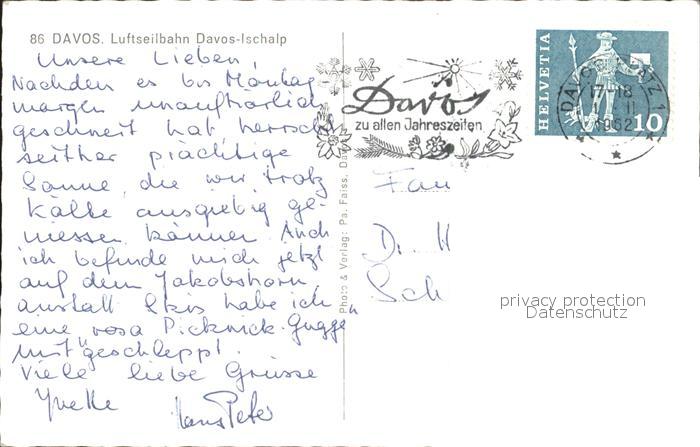 86 DAVOS. Luftseilbahn Davos-Ischalp
Unsere Lieben,
Nachdem es bis Montag-
morgen unaufhörlich
geschneit hat herrscht
seither prächtige
Sonne, die wir trotz
Kälte ausgiebig ge-
niessen können. Auch
ich befinde mich jetzt
auf dem Jakobshorn,
anstatt Skis habe ich
eine rosa Picknick-Gugge"
mit "geschleppt.
Viele liebe Grüsse
Yvette
Hans Peter
Photo & Verlag: Pa. Faiss, Da
Davos
zu allen Jahreszeiten
HELVETIA
10
DAVOS PLATZ 1
17-18
II
1962
Fam
D. H
Sch
privacy protection
Datenschutz